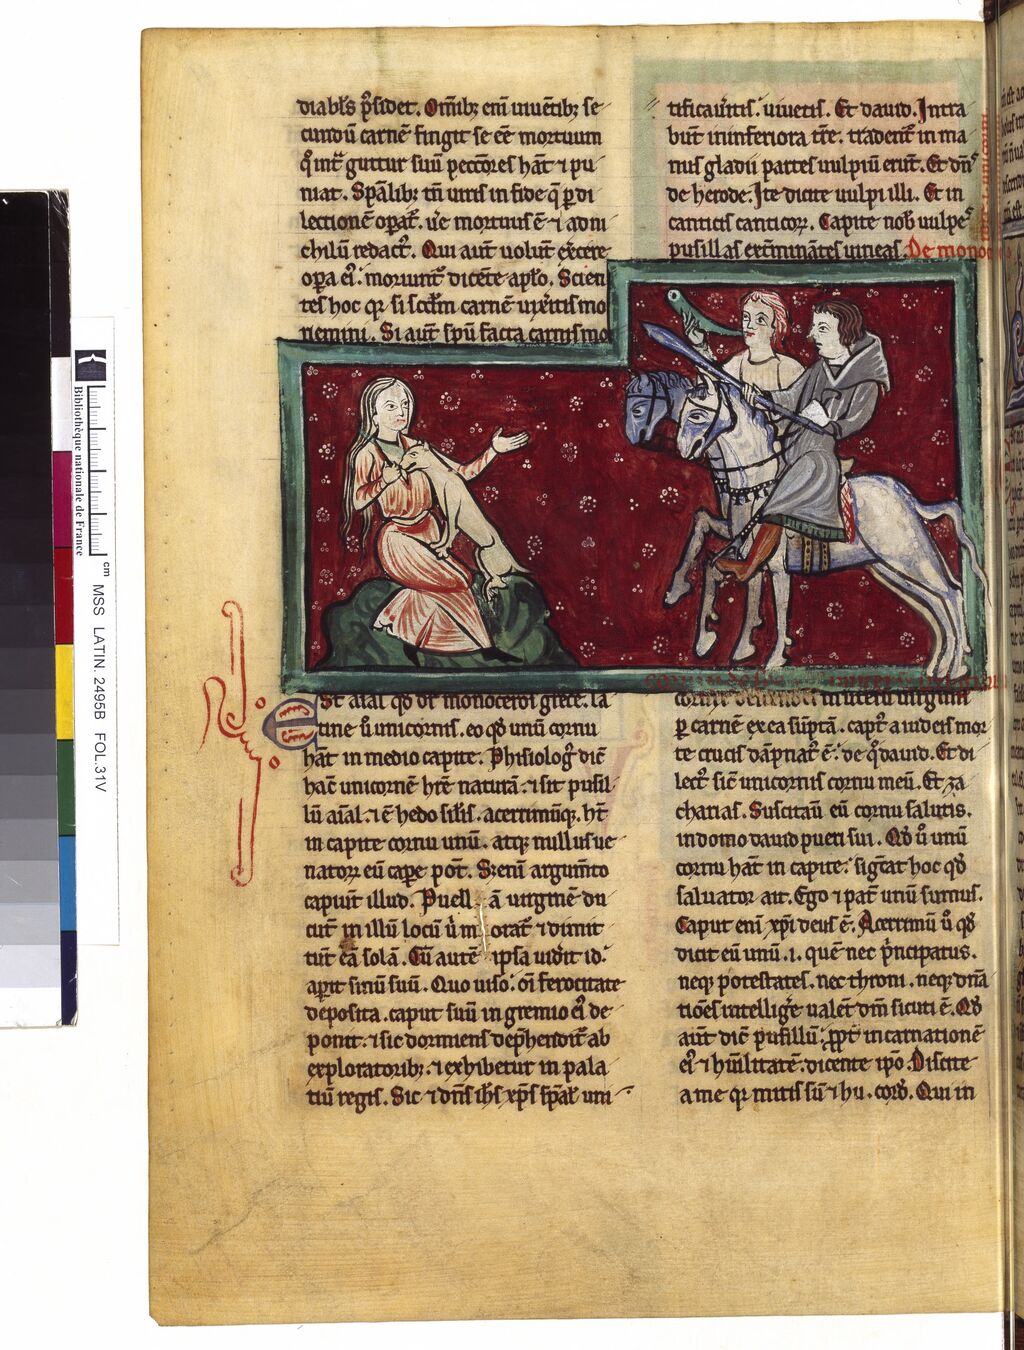 diabl's p̄sidet. Om̄ib; em̄ uiuētib; se
cundū carnē fingit se eē mortuum
q̊s int̄ guttur suū peccōres hāt ⁊ pu
niat. Sp̄alib; tn̄ uiris in fide q̄ ꝑ di
lectionē oꝑat̄. ū'e mortuus ē ⁊ ad ni
chilū redact᷒. Qui aut̄ uolūt ex̄cere
oꝑa ei᷒. moriunt᷒ dicēte apło. Scien
tes hoc qꝛ si scd̄m carnē uixeritis mo
riemini. Si aut̄ sp̄u facta carnis mo
tificau̾itis. uiuetis. Et dauid. Intra
būt in inferiora tr̄e. tradent᷒ in ma
nus gladii partes uulpiū erūt. Et dn̄s
de herode. Ite dicite uulpi illi. Et in
canticis canticoꝝ. Capite nob̄ uulpes
pusillas ext̄minātes uineas. De monoc
Est aīal qd̄ dr̄ monoceros grece. la
tine ū unicornis. eo qd̄ unū cornu
hāt in medio capite. Phisiolog᷒ dic̄
hāc unicornē hr̄e naturā. ⁊ sit pusil
lū aīal. ⁊ ē hedo sil̄is. acerrimūq;. ht̄
in capite cornu unū. atq; nullus ue
natoꝝ eū caꝑe pot̄. S; cum argum̄to
capiūt illud. Puellā uirginē du
cūt in illū locū ū' morat᷒ ⁊ dimit
tūt eā solā. Cū autē ipsa uid̄it id.
aꝑit sinū suū. Quo uiso. oī ferocitate
deposita. caput suū in gremio ei᷒ de
ponit. ⁊ sic dormiens dep̄hendit᷒ ab
exploratorib;. ⁊ exhibetur in pala
tiū regis. Sic ⁊ dn̄s ih̄s xp̄s sp̄al᷒ uni
cornis in uterū uirginis
ꝑ carnē ex ea sūptā. capt᷒ a iudeis mor
te crucis dāpnat᷒ ē. de q̊ dauid. Et di
lect᷒ sic̄ unicornis cornu meū. Et za
charias. Suscitau̾ eū cornu salutis.
in domo dauid pueri sui. Qd̄ ū unū
cornu hāt in capite. sig̅cat hoc qd̄
saluator ait. Ego ⁊ pat̄ unū sumus.
Caput eni xp̄i deus ē. Acerrimū ū qd̄
dicit eū unū. i. quē nec p̊ncipatus.
neq; potestates. nec throni. neq; dn̄a
tiōes intellig̾e ualēt dm̄ sicuti ē. Qd̄
aut̄ dic̄ pusillū. ꝓpt̄ incarnationē
ei᷒ ⁊ hūilitatē. dicente ip̄o. Discite
a me qꝛ mitis sū ⁊ hu. cord̄. Qui in
Bibliothèque nationale de France
cm
MSS LATIN. 2495B FOL.31V